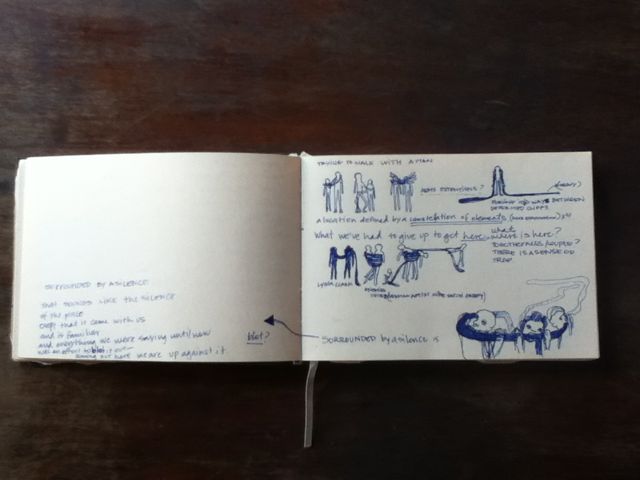 SURROUNDED BY A SILENCE
that sounds like the silence
of the place
except that it came with us
and is familiar
and everything we were saying until now
was an effort to blot it out
coming out here we are up against it
blot?
TO WALK WITH A MAN
ARMS EXTENSIONS?
BETWEEN
a location defined by a constellation of elements
What we've had to give up to get here, what
where is here?
TOGETHERNESS/COUPLE?
THERE IS A SENSE OF
TRAP
LYGIA CLARK
SURROUNDED by a silence is